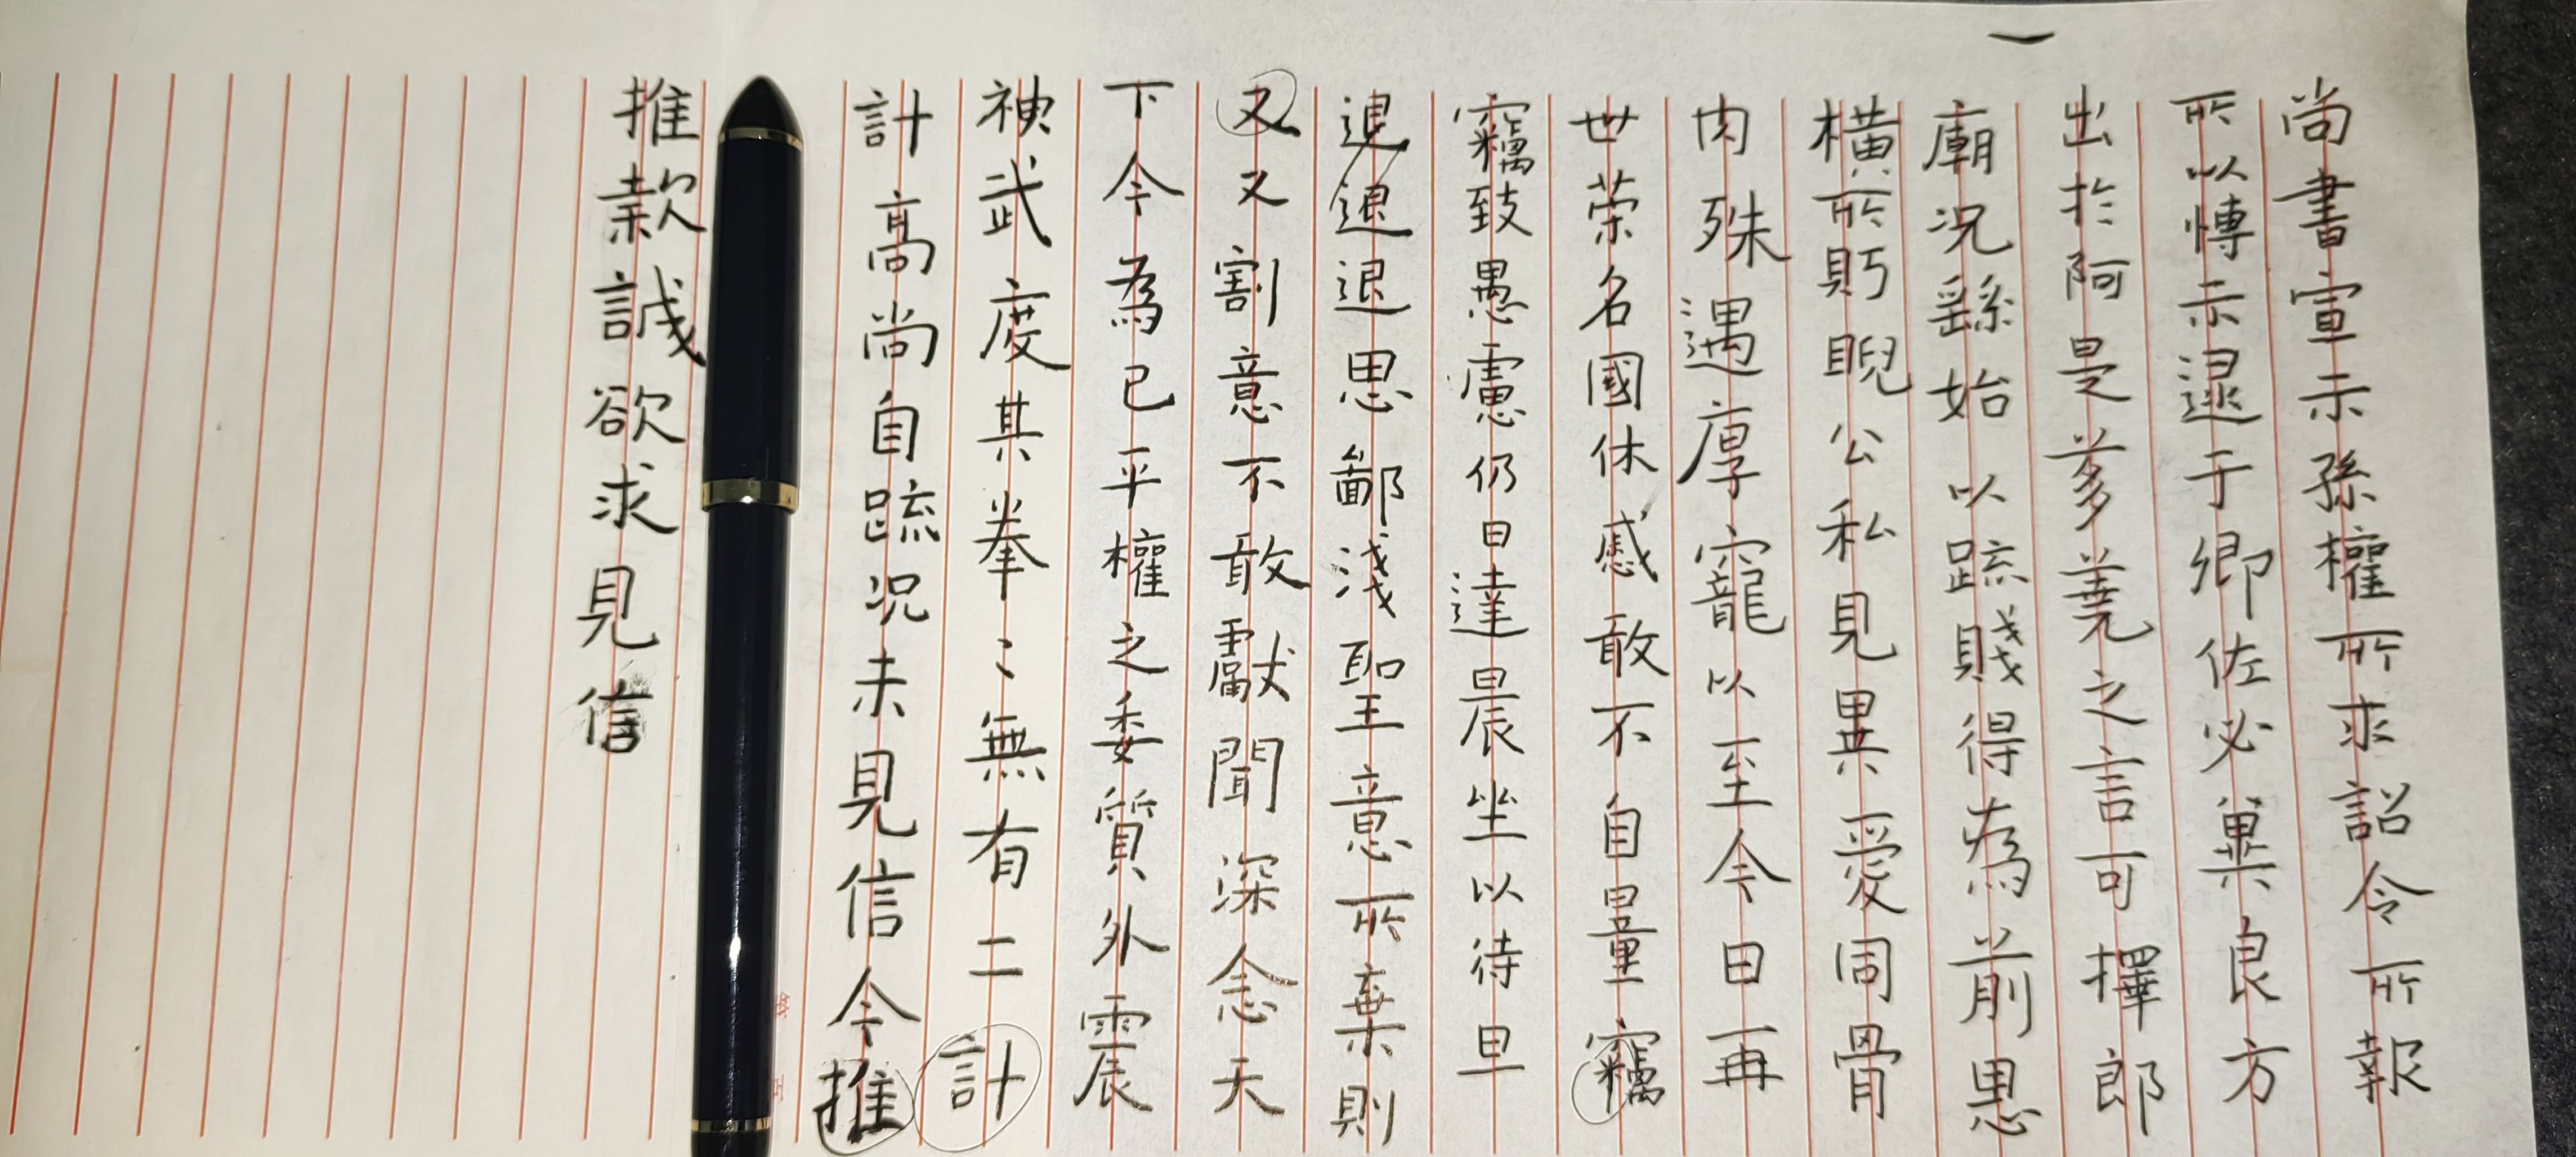 尚書宣示孫權所求詔令所報
所以慱示逮于卿佐必兾良方
出於阿是芻蕘之言可擇郎
廟况繇始以䟽賤得為前恩
橫所眄睨公私見異愛同骨
肉殊遇厚寵以至今日再
世荣名國休慼敢不自量竊
竊致愚慮仍日達晨坐以待旦
退退退思鄙淺聖意所棄則
又又割意不敢獻聞深念天
下今為已平權之委質外震
神武度其拳〻無有二計
計高尚自䟽况未見信今推
推款誠欲求見信